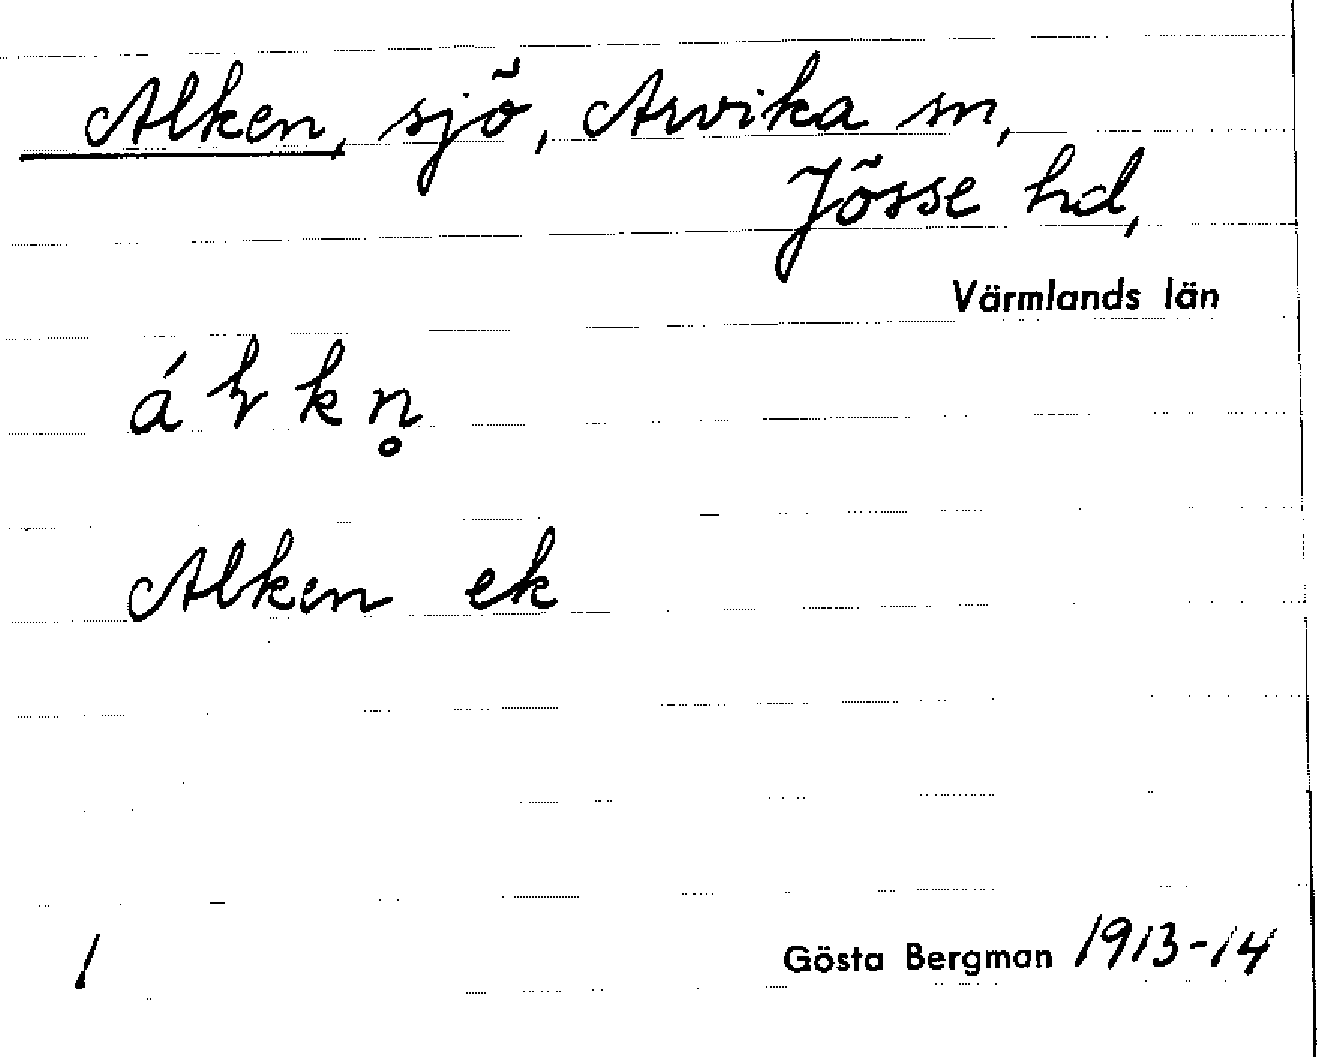 Alken, sjö, Arvika sn,
Jösse hd,
Värmlands län
Alken ek
1
Gösta Bergman 1913-14